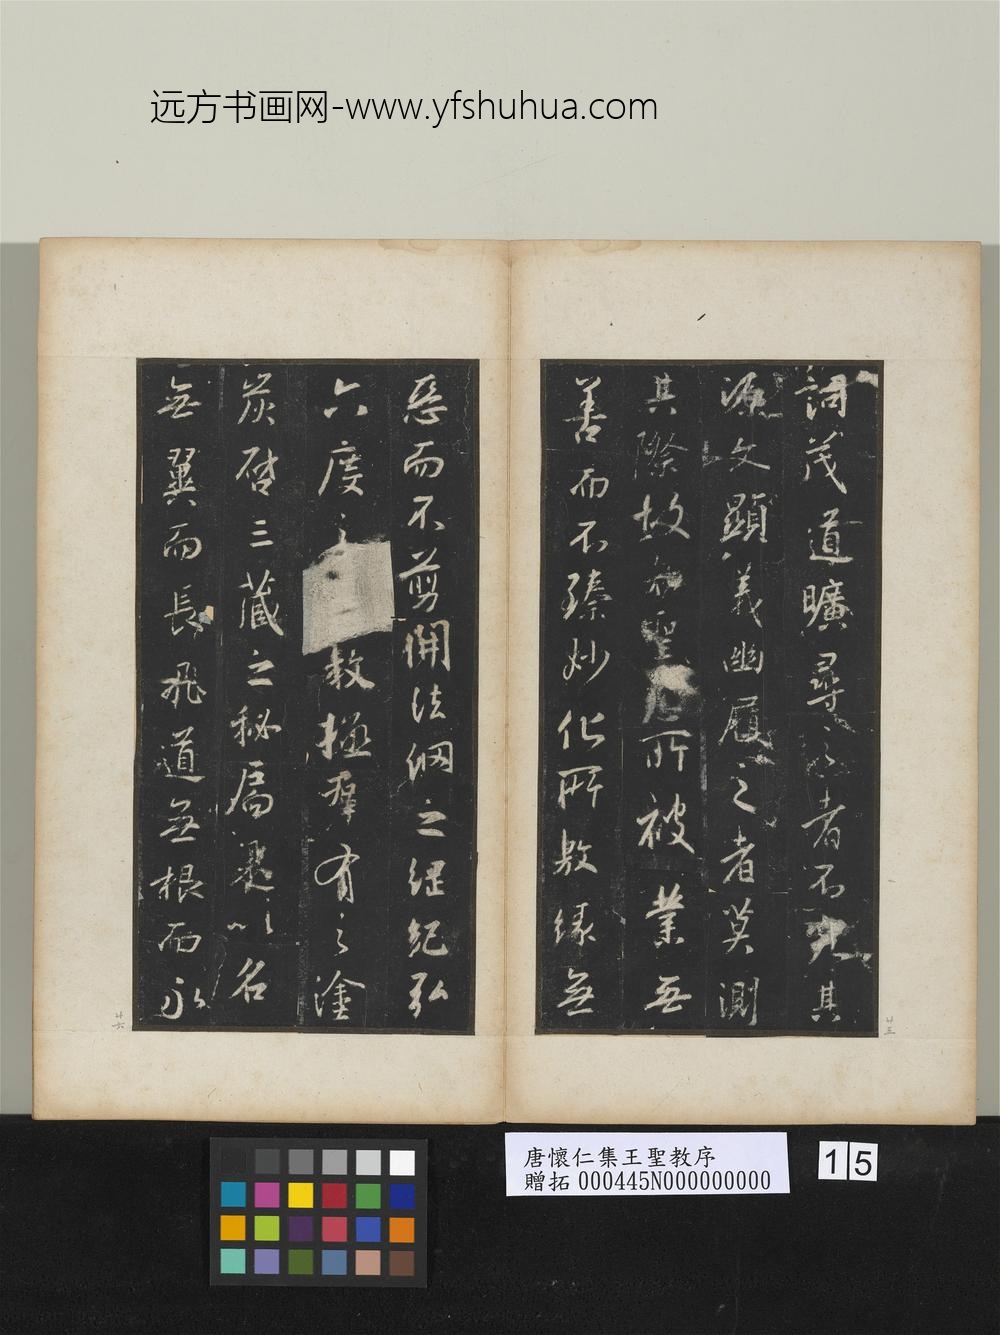 远方书画网-www.yfshuhua.com
詞茂道曠尋之者不究其
源文顯義幽履之者莫測
其際故知聖所被業無
善而不臻妙化所敷緣無
惡而不剪開法網之綱紀弘
六度之教拯群有之塗
炭啓三藏之秘扃是以名
無翼而長飛道無根而永
唐懷仁集王聖教序
贈拓 000445N000000000
15